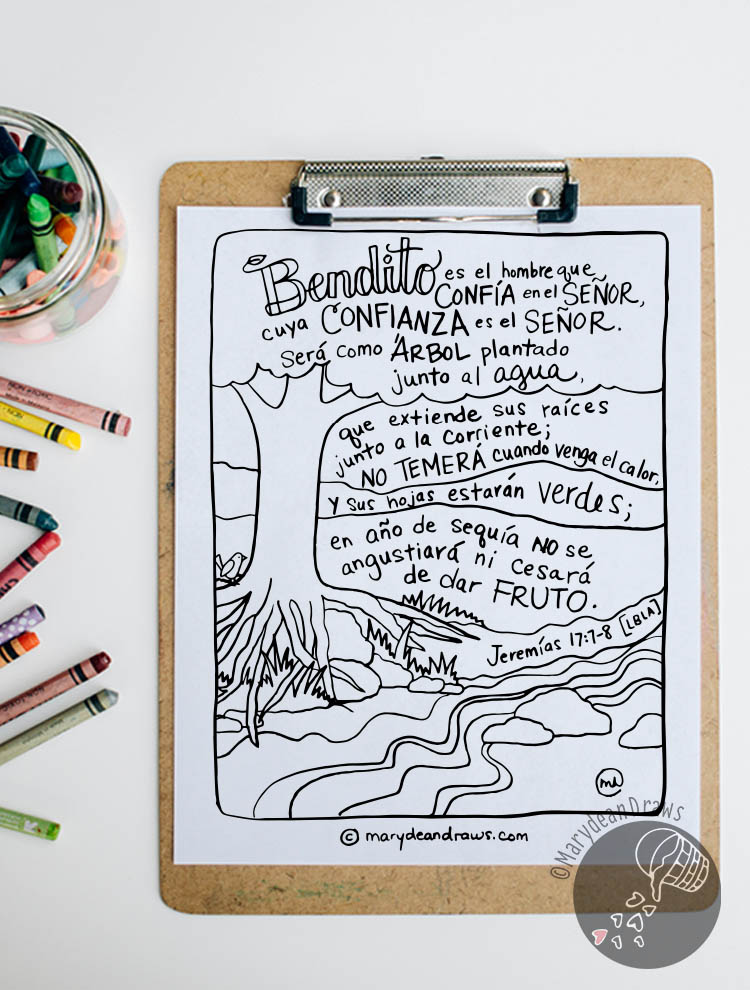 Bendito es el hombre que
CONFÍA en el SEÑOR,
cuya CONFIANZA es el SEÑOR.
Será como ÁRBOL plantado
junto al agua,
que extiende sus raíces
junto a la corriente;
NO TEMERÁ cuando venga el calor,
Y sus hojas estarán verdes;
en año de sequía NO se
angustiará ni cesará
de dar FRUTO.
Jeremías 17:7-8 [LBLA]
md
© marydeandraws.com
©MarydeanDraws
NON-TOXIC